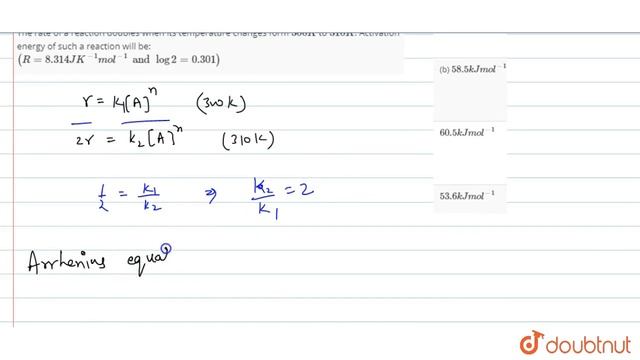 The rate of a reaction doubles when its temperature changes form 300K to 310K. Activation
energy of such a reaction will be:
(R = 8.314JK⁻¹mol⁻¹ and log2 = 0.301)
(b) 58.5kJmol⁻¹
r = k₁[A]ⁿ (300K)
2r = k₂[A]ⁿ (310K)
60.5kJmol⁻¹
1/2 = k₁/k₂ ⇒ k₂/k₁ = 2
53.6kJmol⁻¹
Arrhenius equa
doubtnut